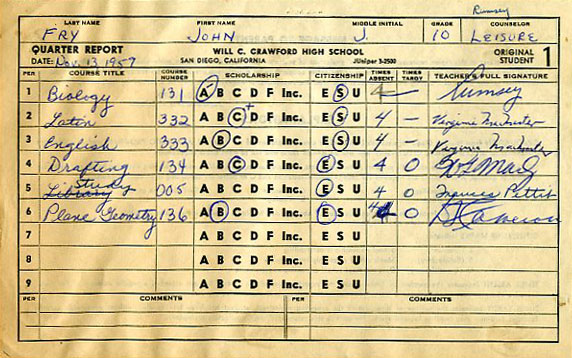 Rumsey
LAST NAME FIRST NAME MIDDLE INITIAL GRADE COUNSELOR
FRY JOHN J. 10 LEISURE
QUARTER REPORT WILL C. CRAWFORD HIGH SCHOOL ORIGINAL
DATE Nov. 13, 1957 SAN DIEGO, CALIFORNIA JUniper 3-2500 STUDENT 1
PER COURSE TITLE COURSE NUMBER SCHOLARSHIP CITIZENSHIP TIMES ABSENT TIMES TARDY TEACHER'S FULL SIGNATURE
1 Biology 131 A B C D F Inc. E S U 4 — Rumsey
2 Latin 332 A B C+ D F Inc. E S U 4 — Virginia
3 English 333 A B C D F Inc. E S U 4 — Virginia
4 Drafting 134 A B C D F Inc. E S U 4 0
5 Library Study 005 A B C D F Inc. E S U 4 0 Frances Pettit
6 Plane Geometry 136 A B C D F Inc. E S U 4 0 Cameron
7 A B C D F Inc. E S U
8 A B C D F Inc. E S U
9 A B C D F Inc. E S U
PER COMMENTS PER COMMENTS